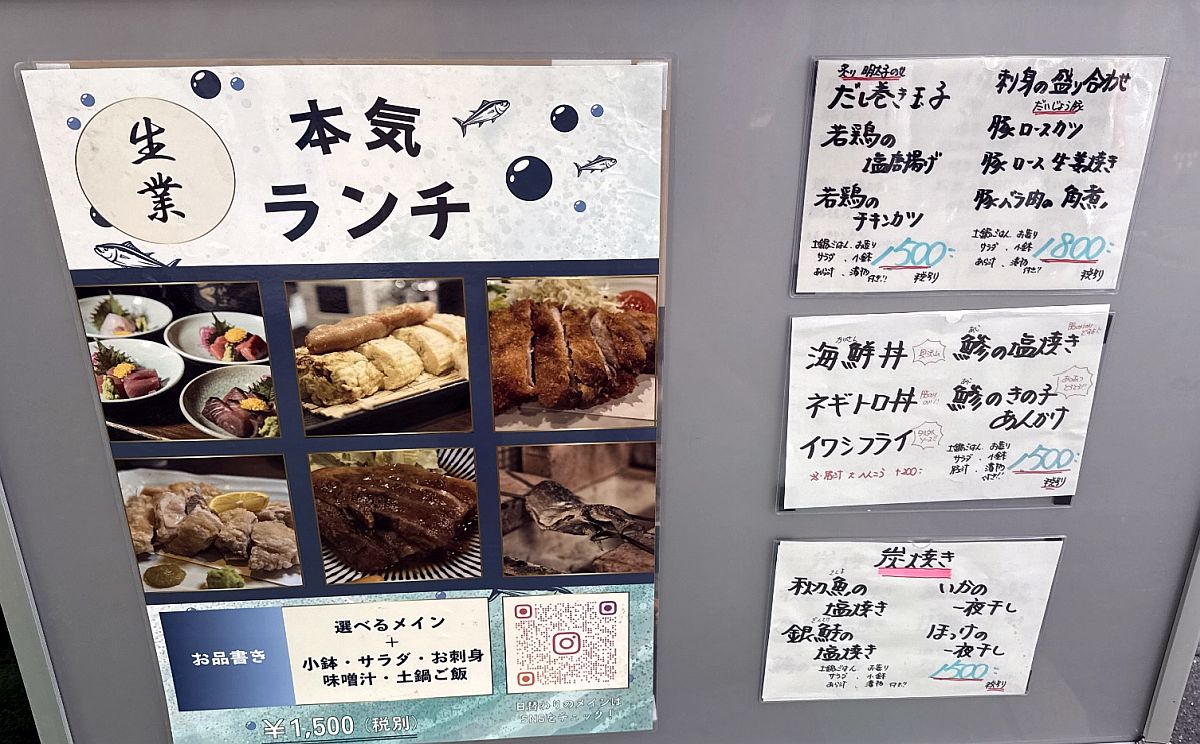 生業
本気
ランチ
お品書き
選べるメイン
+
小鉢・サラダ・お刺身
味噌汁・土鍋ご飯
¥1,500 (税別)
日替わりのメインは
SNSをチェック!
だし巻き玉子
若鶏の
塩唐揚げ
若鶏の
チキンカツ
土鍋ごはん お造り
サラダ 、小鉢
あら汁 、漬物
付き!!
1500-
税別
刺身の盛り合わせ
だいじょう豚
豚ロースカツ
豚ロース生姜焼き
豚バラ肉の角煮
土鍋ごはん お造り
サラダ 、小鉢
あら汁 、漬物
付き!!
1800-
税別
かいせん
海鮮丼
ネギトロ丼
イワシフライ
あじ
鯵の塩焼き
あじ
鯵のきの子
あんかけ
土鍋ごはん お造り
サラダ 、小鉢
豚汁 、漬物
付き!!
1500-
税別
炭焼き
さんま
秋刀魚の
塩焼き
銀鮭の
塩焼き
土鍋ごはん お造り
サラダ 小鉢
あら汁 漬物 付き!!
いかの
一夜干し
ほっけの
一夜干し
1500-
税別